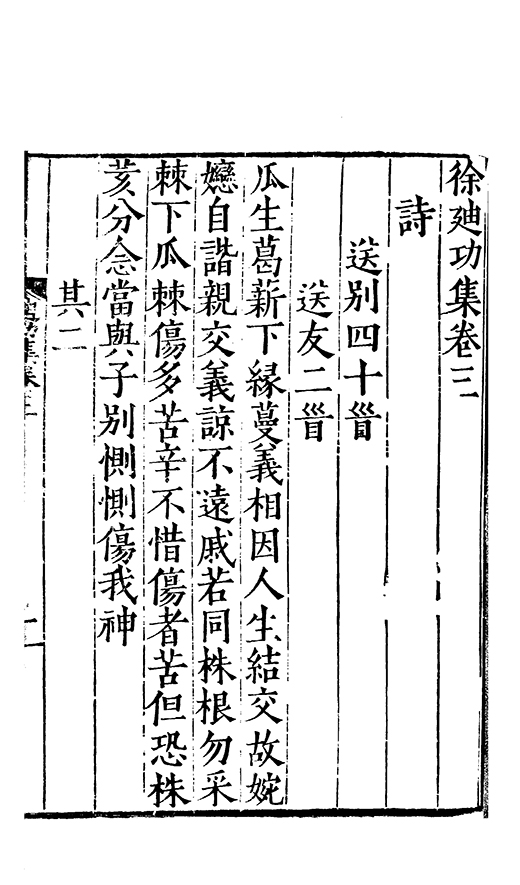 徐廸功集卷三
詩
送別四十首
送友二首
瓜生葛薪下緣蔓義相因人生結交故婉
孌自諧親交義諒不遠戚若同株根勿采
棘下瓜棘傷多苦辛不惜傷者苦但恐株
荄分念當與子別惻惻傷我神
其二